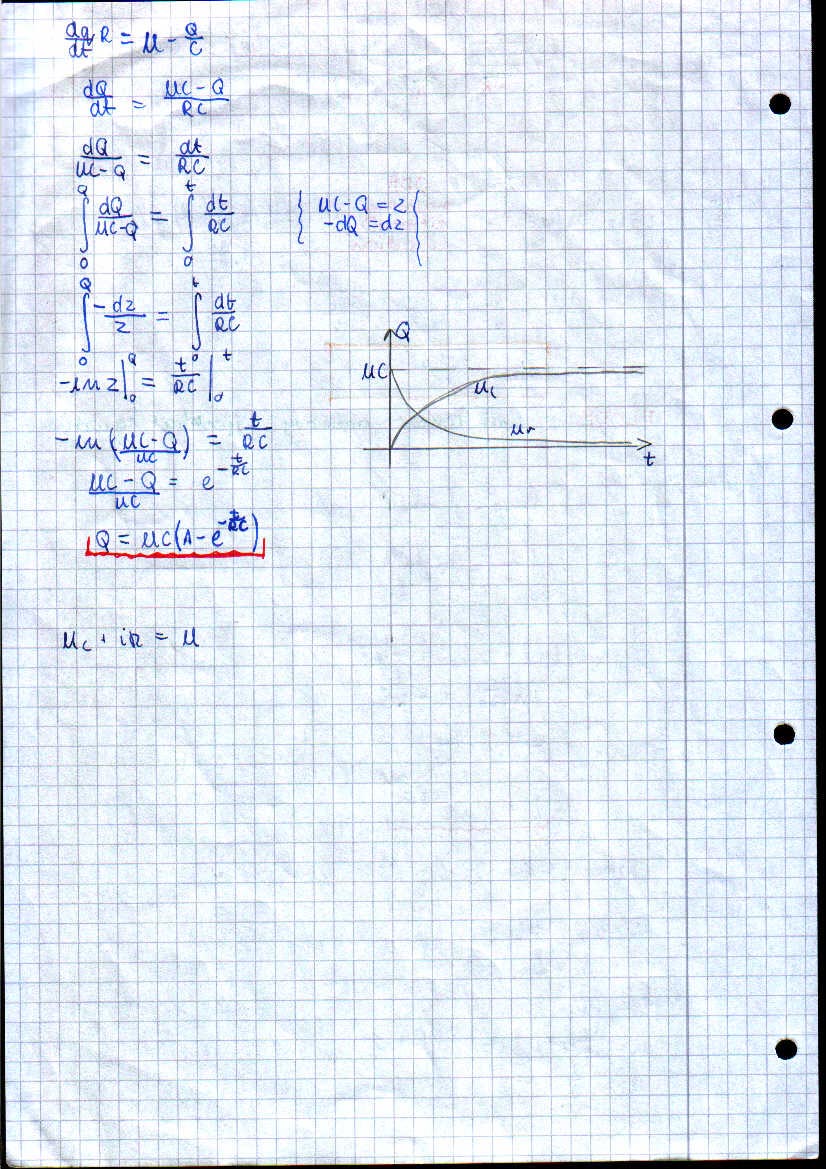 dq/dt R = U - Q/C
dQ/dt = UC - Q/RC
dQ/UC - Q = dt/RC
∫₀^Q dQ/UC-Q = ∫₀^t dt/RC { UC - Q = z
-dQ = dz {
∫₀^Q -dz/z = ∫₀^t dt/RC
-ln z |₀^Q = t/RC |₀^t
-ln (UC-Q/UC) = t/RC
UC - Q/UC = e^-t/RC
Q = UC(1 - e^-t/RC)
Q
UC
uc
ur
t
uc + iR = U